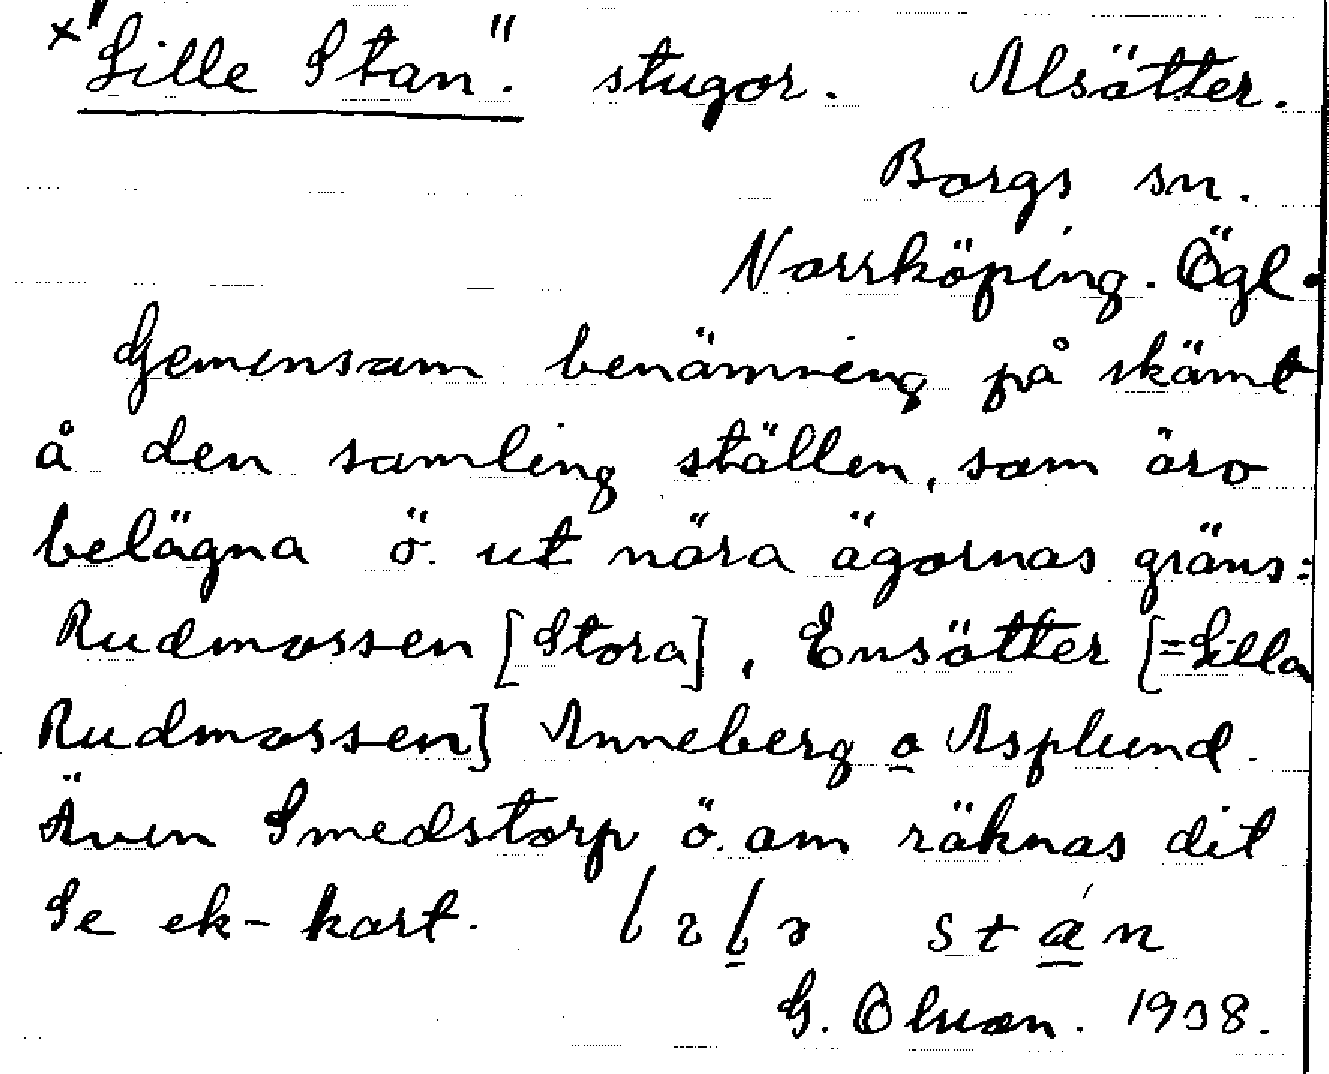 x "Lille Stan". stugor. Alsätter.
Borgs sn.
Norrköping. Ögl.
Gemensam benämning på skämt
å den samling ställen, som äro
belägna ö. ut nära ägornas gräns:
Rudmossen [Stora], Ensätter [=Lilla
Rudmossen] Anneberg o Asplund.
Även Smedstorp ö. om räknas dit
Se ek-kart. stán
G. Olsson. 1938.